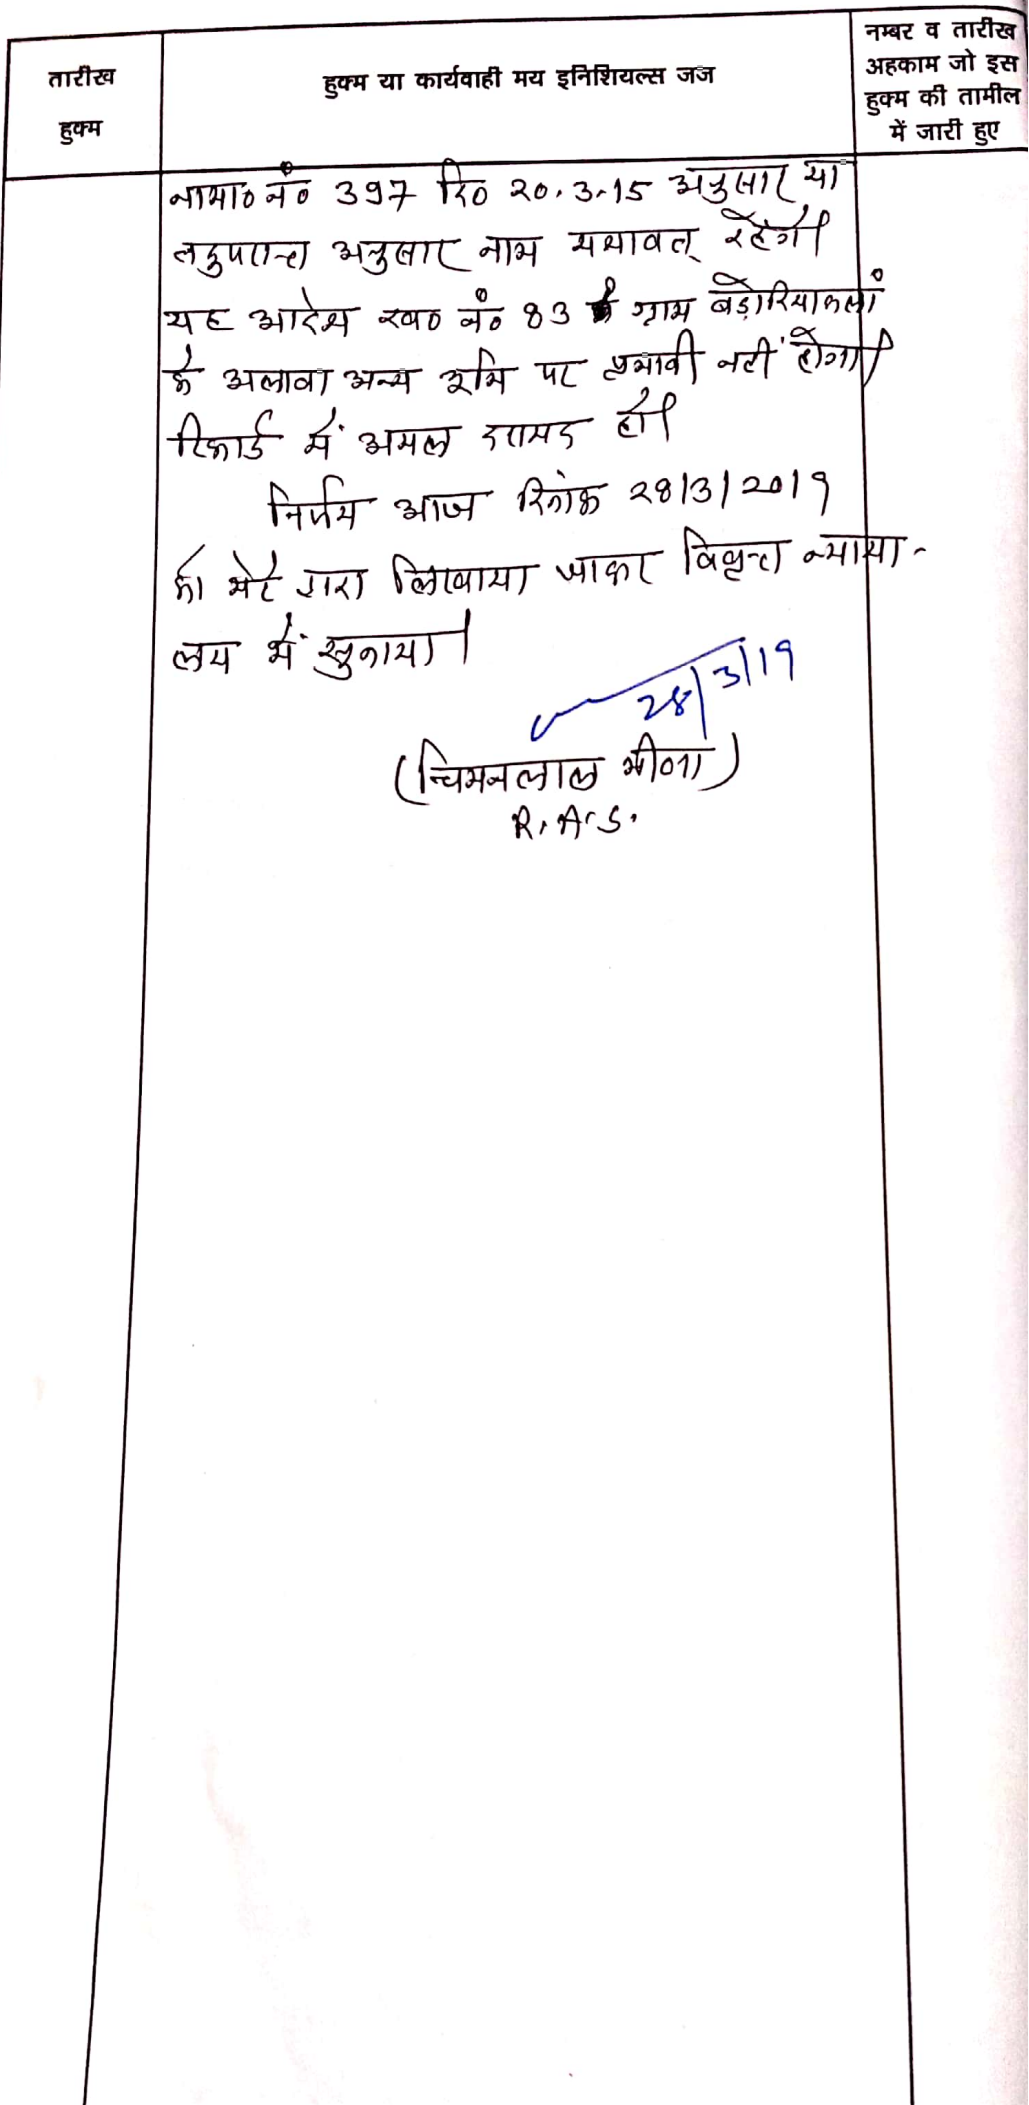 तारीख
हुक्म
हुक्म या कार्यवाही मय इनिशियल्स जज
नम्बर व तारीख
अहकाम जो इस
हुक्म की तामील
में जारी हुए
नामा० नं० 397 दि० २०.3.15 अनुसार या
तदुपरान्त अनुसार नाम यथावत् रहेंगे।
यह आदेश ख० नं० 83 ग्राम बेड़ोरियाकलां
के अलावा अन्य भूमि पर प्रभावी नहीं होगा।
रिकार्ड में अमल दरामद हो।
निर्णय आज दिनांक २8/3/२०१9
को मेरे द्वारा लिखाया जाकर विवृत्त न्याया-
लय में सुनाया।
28/3/19
(चिमनलाल मीणा)
R.A.S.